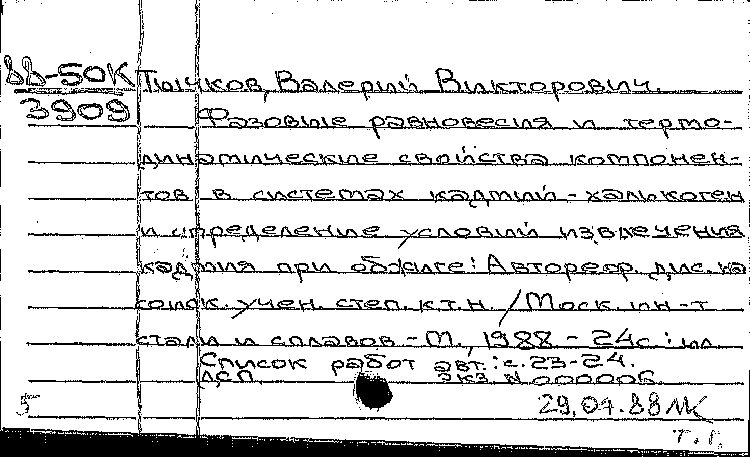 88-50К Пычков, Валерий Викторович.
3909 Фазовые равновесия и термо-
динамические свойства компонен-
тов в системах кадмий - халькоген
и определение условий извлечения
кадмия при обжиге: Автореф. дис. на
соиск. учен. степ. к.т.н. / Моск. ин-т
стали и сплавов - М., 1988 - 24с.: ил.
Список работ авт.: с. 23-24.
ДСП. Экз. N 000006.
5 29.04.88 МК
Т. Г.